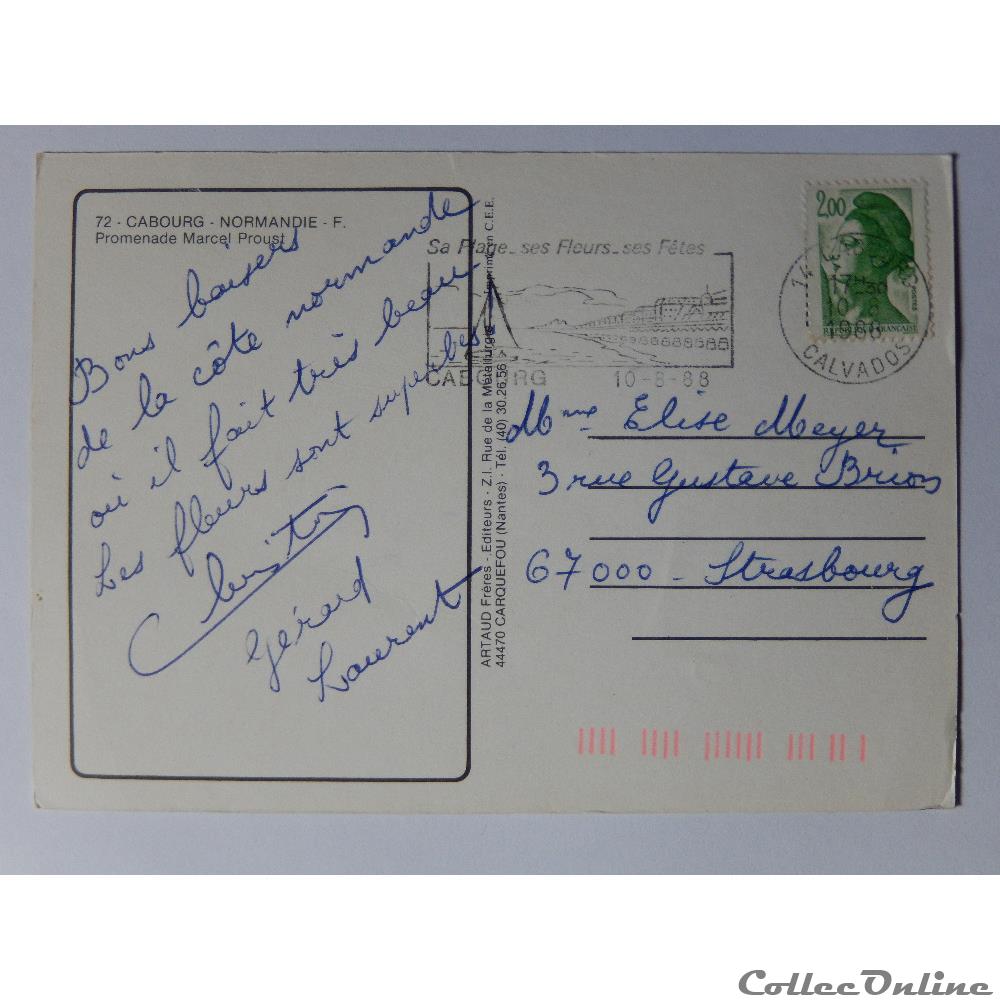 72 - CABOURG - NORMANDIE - F.
Promenade Marcel Proust
Bons baisers
de la côte normande
où il fait très beau.
Les fleurs sont superbes
Gérard
Laurent
ARTAUD Frères - Editeurs - Z.I. Rue de la Métallurgie - Imprimé en C.E.E.
44470 CARQUEFOU (Nantes) - Tél. (40) 30.26.56
Sa Plage_ses Fleurs_ses Fêtes
CABOURG 10-8-88
2,00
RÉPUBLIQUE FRANÇAISE
14
17H30
1988
CALVADOS
Mme Elise Meyer
3 rue Gustave Brion
67000 - Strasbourg
CollecOnline